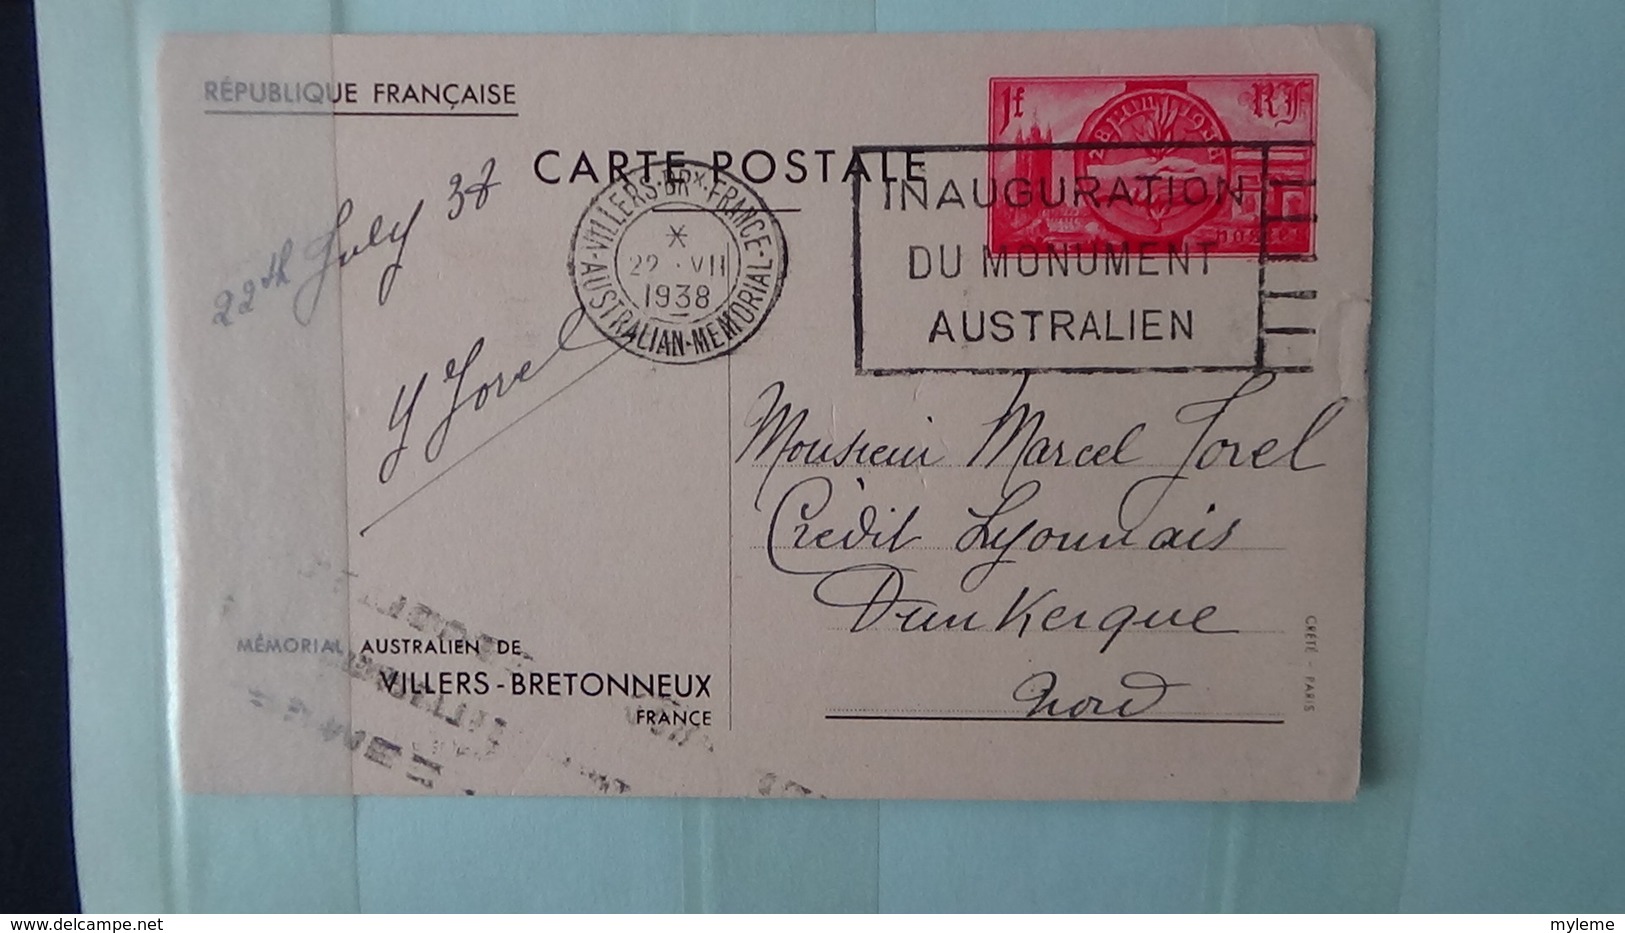 RÉPUBLIQUE FRANÇAISE
1f RF
28 Juin 1938
CARTE POSTALE
VILLERS-BRX-FRANCE-
*
22 · VII
1938
AUSTRALIAN-MEMORIAL-
INAUGURATION
DU MONUMENT
AUSTRALIEN
22th July 38
Y Jorel
Monsieur Marcel Jorel
Crédit Lyonnais
Dunkerque
Nord
MÉMORIAL AUSTRALIEN DE
VILLERS-BRETONNEUX
FRANCE
CRÉTÉ - PARIS
© myleme
myleme.com